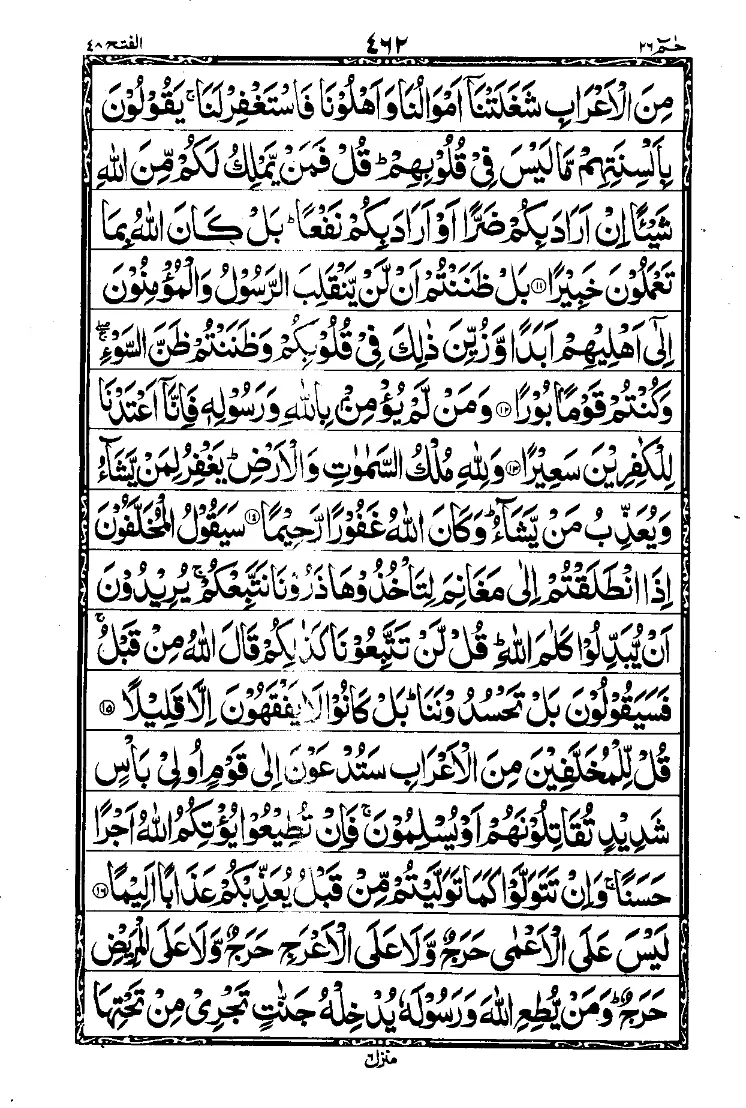 حٰمٓ ٢٦ ٤٦٢ الفتح ٤٨
مِنَ الْاَعْرَابِ شَغَلَتْنَاۤ اَمْوَالُنَا وَاَهْلُوْنَا فَاسْتَغْفِرْ لَنَا ۚ يَقُوْلُوْنَ
بِاَلْسِنَتِهِمْ مَّا لَيْسَ فِىْ قُلُوْبِهِمْ ؕ قُلْ فَمَنْ يَّمْلِكُ لَكُمْ مِّنَ اللّٰهِ
شَيْـًٔا اِنْ اَرَادَ بِكُمْ ضَرًّا اَوْ اَرَادَ بِكُمْ نَفْعًا ؕ بَلْ كَانَ اللّٰهُ بِمَا
تَعْمَلُوْنَ خَبِيْرًا ﴿١١﴾ بَلْ ظَنَنْتُمْ اَنْ لَّنْ يَّنْقَلِبَ الرَّسُوْلُ وَالْمُؤْمِنُوْنَ
اِلٰٓى اَهْلِيْهِمْ اَبَدًا وَّزُيِّنَ ذٰلِكَ فِىْ قُلُوْبِكُمْ وَظَنَنْتُمْ ظَنَّ السَّوْءِ ۖۚ
وَكُنْتُمْ قَوْمًاۢ بُوْرًا ﴿١٢﴾ وَمَنْ لَّمْ يُؤْمِنْۢ بِاللّٰهِ وَرَسُوْلِهٖ فَاِنَّاۤ اَعْتَدْنَا
لِلْكٰفِرِيْنَ سَعِيْرًا ﴿١٣﴾ وَلِلّٰهِ مُلْكُ السَّمٰوٰتِ وَالْاَرْضِ ؕ يَغْفِرُ لِمَنْ يَّشَآءُ
وَيُعَذِّبُ مَنْ يَّشَآءُ ؕ وَكَانَ اللّٰهُ غَفُوْرًا رَّحِيْمًا ﴿١٤﴾ سَيَقُوْلُ الْمُخَلَّفُوْنَ
اِذَا انْطَلَقْتُمْ اِلٰى مَغَانِمَ لِتَاْخُذُوْهَا ذَرُوْنَا نَتَّبِعْكُمْ ۚ يُرِيْدُوْنَ
اَنْ يُّبَدِّلُوْا كَلٰمَ اللّٰهِ ؕ قُلْ لَّنْ تَتَّبِعُوْنَا كَذٰلِكُمْ قَالَ اللّٰهُ مِنْ قَبْلُ ۚ
فَسَيَقُوْلُوْنَ بَلْ تَحْسُدُوْنَنَا ؕ بَلْ كَانُوْا لَا يَفْقَهُوْنَ اِلَّا قَلِيْلًا ﴿١٥﴾
قُلْ لِّلْمُخَلَّفِيْنَ مِنَ الْاَعْرَابِ سَتُدْعَوْنَ اِلٰى قَوْمٍ اُولِىْ بَاْسٍ
شَدِيْدٍ تُقَاتِلُوْنَهُمْ اَوْ يُسْلِمُوْنَ ۚ فَاِنْ تُطِيْعُوْا يُؤْتِكُمُ اللّٰهُ اَجْرًا
حَسَنًا ۚ وَاِنْ تَتَوَلَّوْا كَمَا تَوَلَّيْتُمْ مِّنْ قَبْلُ يُعَذِّبْكُمْ عَذَابًا اَلِيْمًا ﴿١٦﴾
لَيْسَ عَلَى الْاَعْمٰى حَرَجٌ وَّلَا عَلَى الْاَعْرَجِ حَرَجٌ وَّلَا عَلَى الْمَرِيْضِ
حَرَجٌ ؕ وَمَنْ يُّطِعِ اللّٰهَ وَرَسُوْلَهٗ يُدْخِلْهُ جَنّٰتٍ تَجْرِىْ مِنْ تَحْتِهَا
منزل ٦